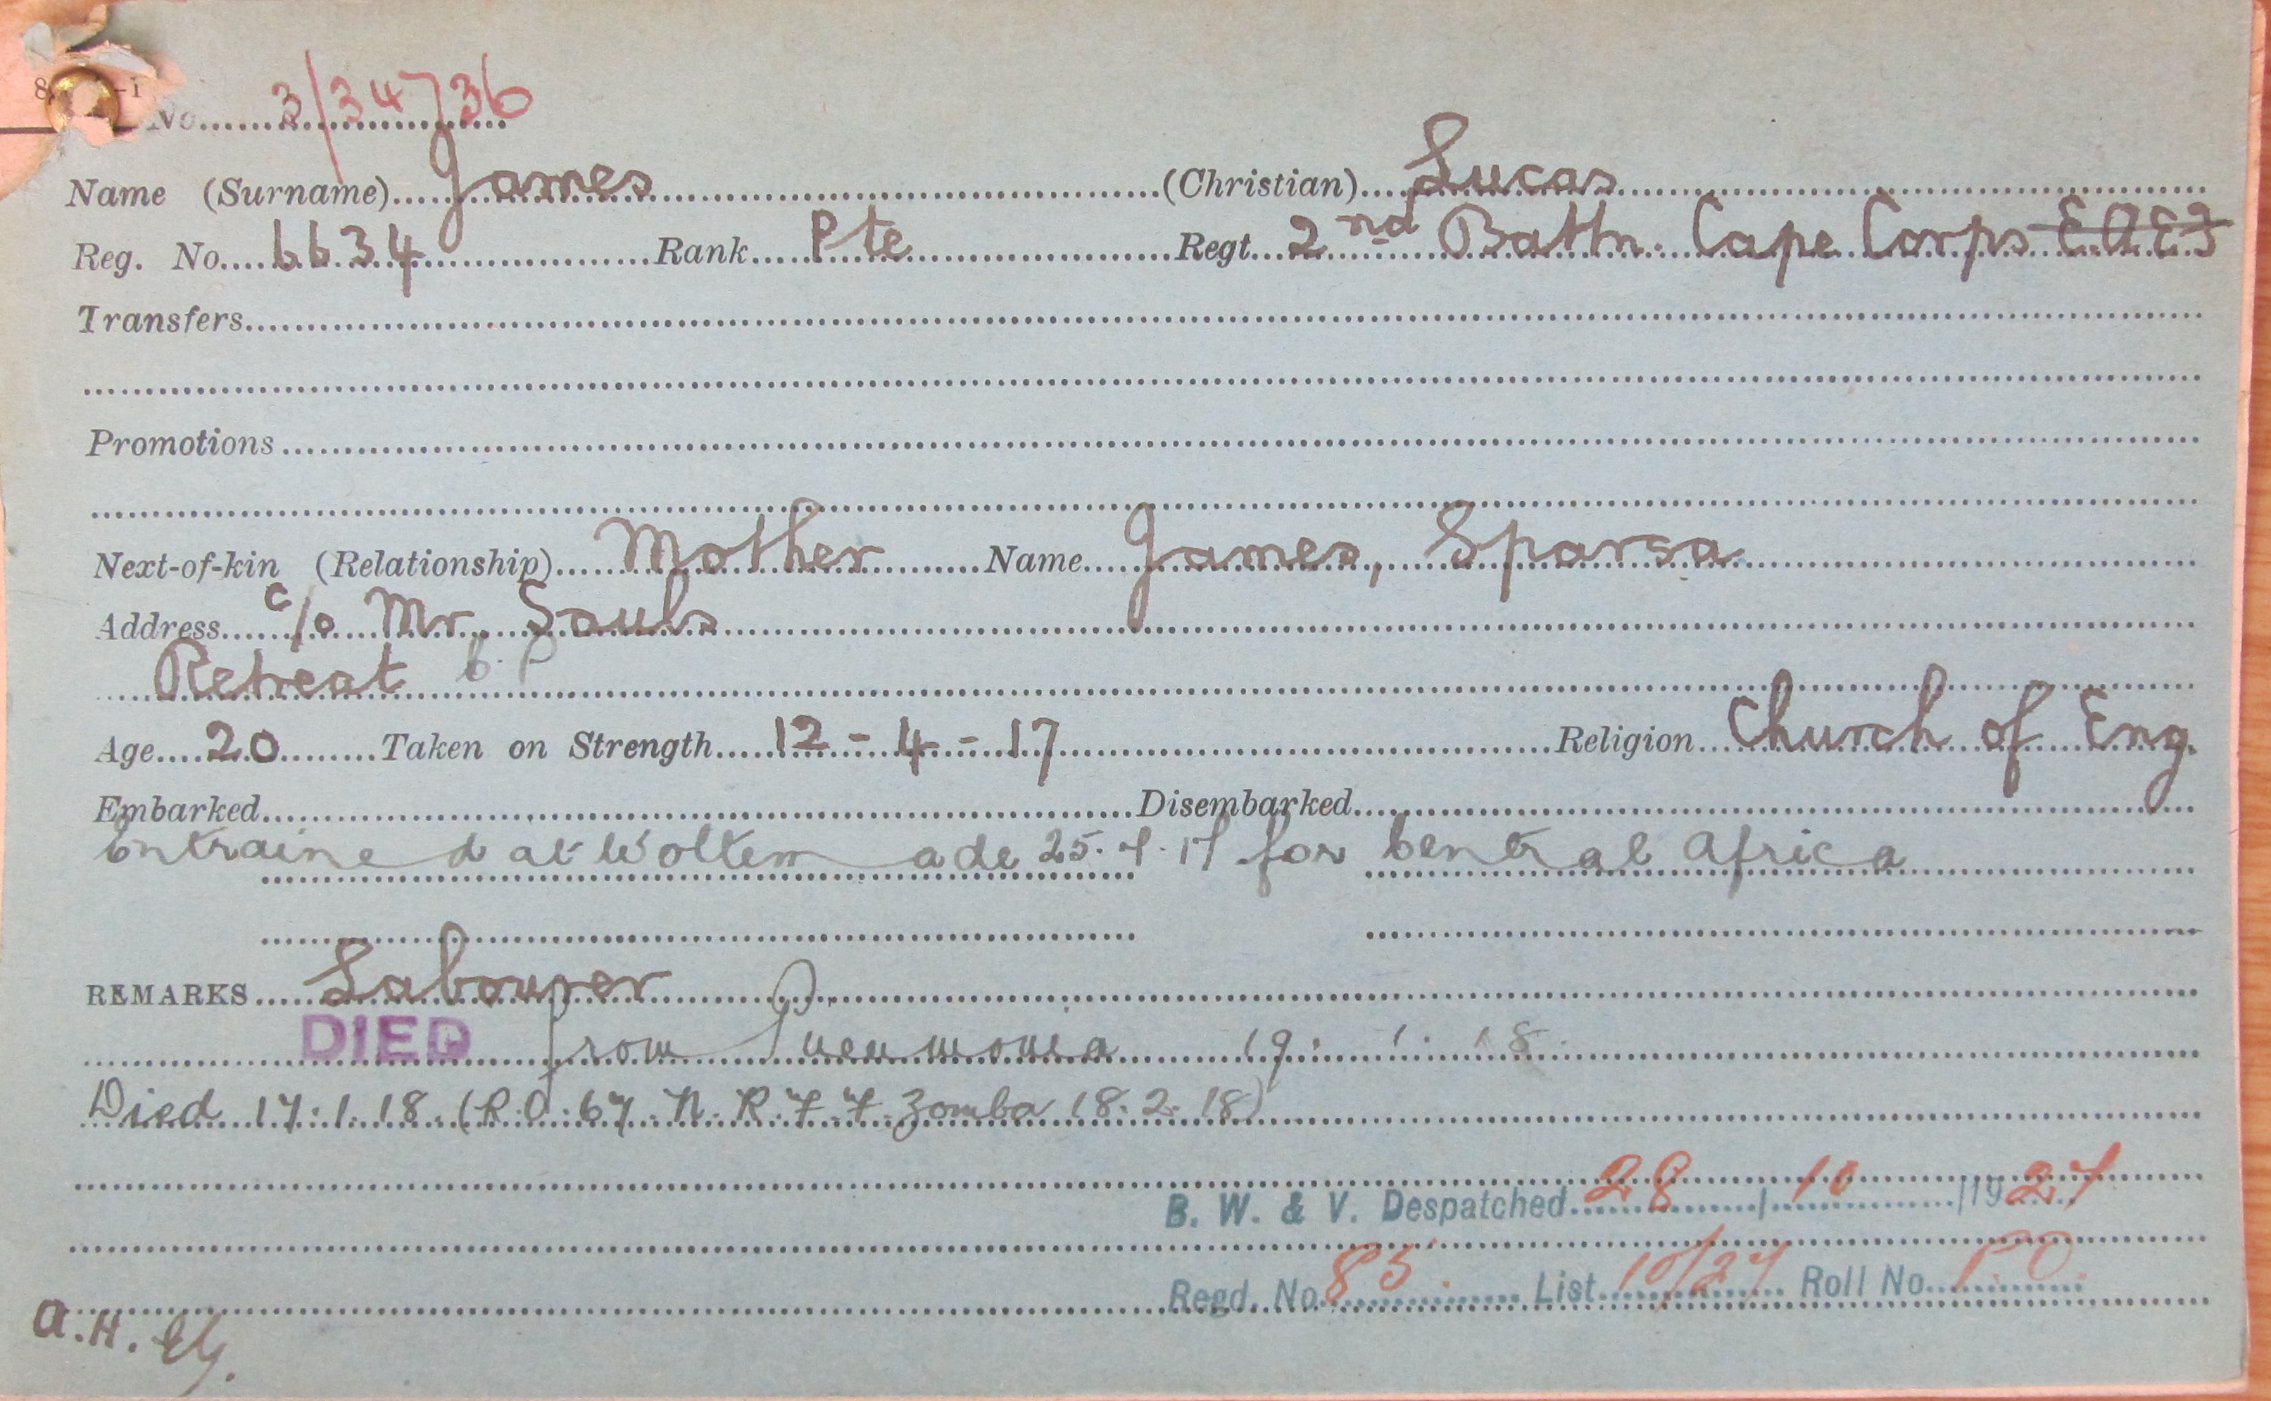 No. 3/34736
Name (Surname) James (Christian) Lucas
Reg. No. 6634 Rank Pte Regt. 2nd Battn. Cape Corps E.A.E.F
Transfers
Promotions
Next-of-kin (Relationship) Mother Name James, Sparsa
Address c/o Mr. Sauls
Retreat C.P
Age 20 Taken on Strength 12-4-17 Religion Church of Eng.
Embarked Disembarked
Entrained at Woltemade 25.7.17 for Central Africa
REMARKS Labourer
DIED from Pneumonia 19. 1. 18.
Died 17.1.18. (R.O. 67. N.R.F.F. Zomba 18.2.18)
B. W. & V. Despatched 28/10/1927
Regd. No. 85. List 10/27 Roll No. P.O.
A.H.